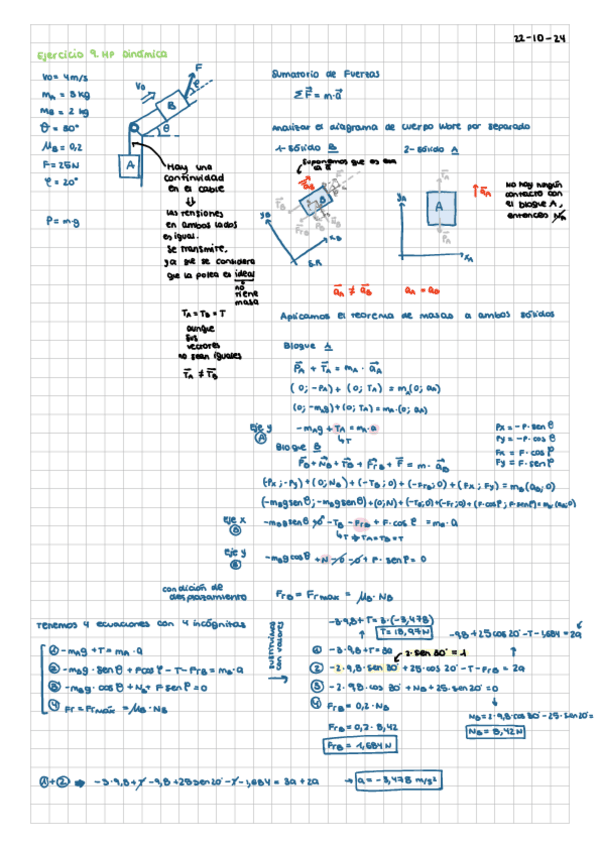 22-10-24
Ejercicio 9. HP Dinámica
V₀ = 4 m/s
mA = 3 kg
mB = 2 kg
θ = 30°
μB = 0,2
F = 25N
φ = 20°
P = m·g
V₀
F
φ
B
θ
A
Hay una
continuidad
en el cable
⇓
las tensiones
en ambos lados
es igual.
Se transmite,
ya que se considera
que la polea es ideal
no
tiene
masa
TA = TB = T
aunque
sus
vectores
no sean iguales
T⃗A ≠ T⃗B
Sumatorio de Fuerzas
ΣF⃗ = m·a⃗
Analizar el diagrama de cuerpo libre por separado
1- sólido B
2- sólido A
Suponemos que es
a⃗B
yB
xB
S.R
yA
A
xA
a⃗A
No hay ningún
contacto con
el bloque A,
entonces
a⃗A ≠ a⃗B aA = aB
Aplicamos el teorema de masas a ambos sólidos
Bloque A
P⃗A + T⃗A = mA · a⃗A
(0; -PA) + (0; TA) = mA(0; aA)
(0; -mAg) + (0; TA) = mA·(0; aA)
Eje y
A
-mAg + TA = mA·a
↳T
Px = -P·sen θ
Py = -P·cos θ
Fx = F·cos φ
Fy = F·sen φ
Bloque B
P⃗B + N⃗B + T⃗B + F⃗rB + F⃗ = m · a⃗B
(-Px; -Py) + (0; NB) + (-TB; 0) + (-FrB; 0) + (Fx; Fy) = mB(aB; 0)
(-mBg sen θ; -mBg sen θ) + (0; N) + (-TB; 0) + (-Fr; 0) + (F·cos φ; F·sen φ) = mB(aB; 0)
Eje x
B
-mBg sen θ + 0 - TB - FrB + F·cos φ = mB·a
↳T → TA = TB = T
Eje y
B
-mBg cos θ + N - 0 - 0 + F·sen φ = 0
condición de
desplazamiento
FrB = Frmax = μB · NB
Tenemos 4 ecuaciones con 4 incógnitas
① -mAg + T = mA·a
② -mBg·sen θ + F cos φ - T - FrB = mB·a
③ -mBg·cos θ + NB + F sen φ = 0
④ Fr = Frmáx = μB·NB
sustituimos
con valores
-3·9,8 + T = 3·(-3,478)
T = 18,97 N
-9,8 + 25 cos 20° - T - 1,684 = 2a
① -3·9,8 + T = 3a
2·sen 30° = 1
② -2·9,8·sen 30° + 25·cos 20° - T - Fr = 2a
③ -2·9,8·cos 30° + NB + 25·sen 20° = 0
④ FrB = 0,2·NB
FrB = 0,2·8,42
FrB = 1,684 N
NB = 2·9,8·cos 30° - 25·sen 20° =
NB = 8,42 N
① + ② ➡ -3·9,8 + T - 9,8 + 25 sen 20° - T - 1,684 = 3a + 2a → a = -3,478 m/s²